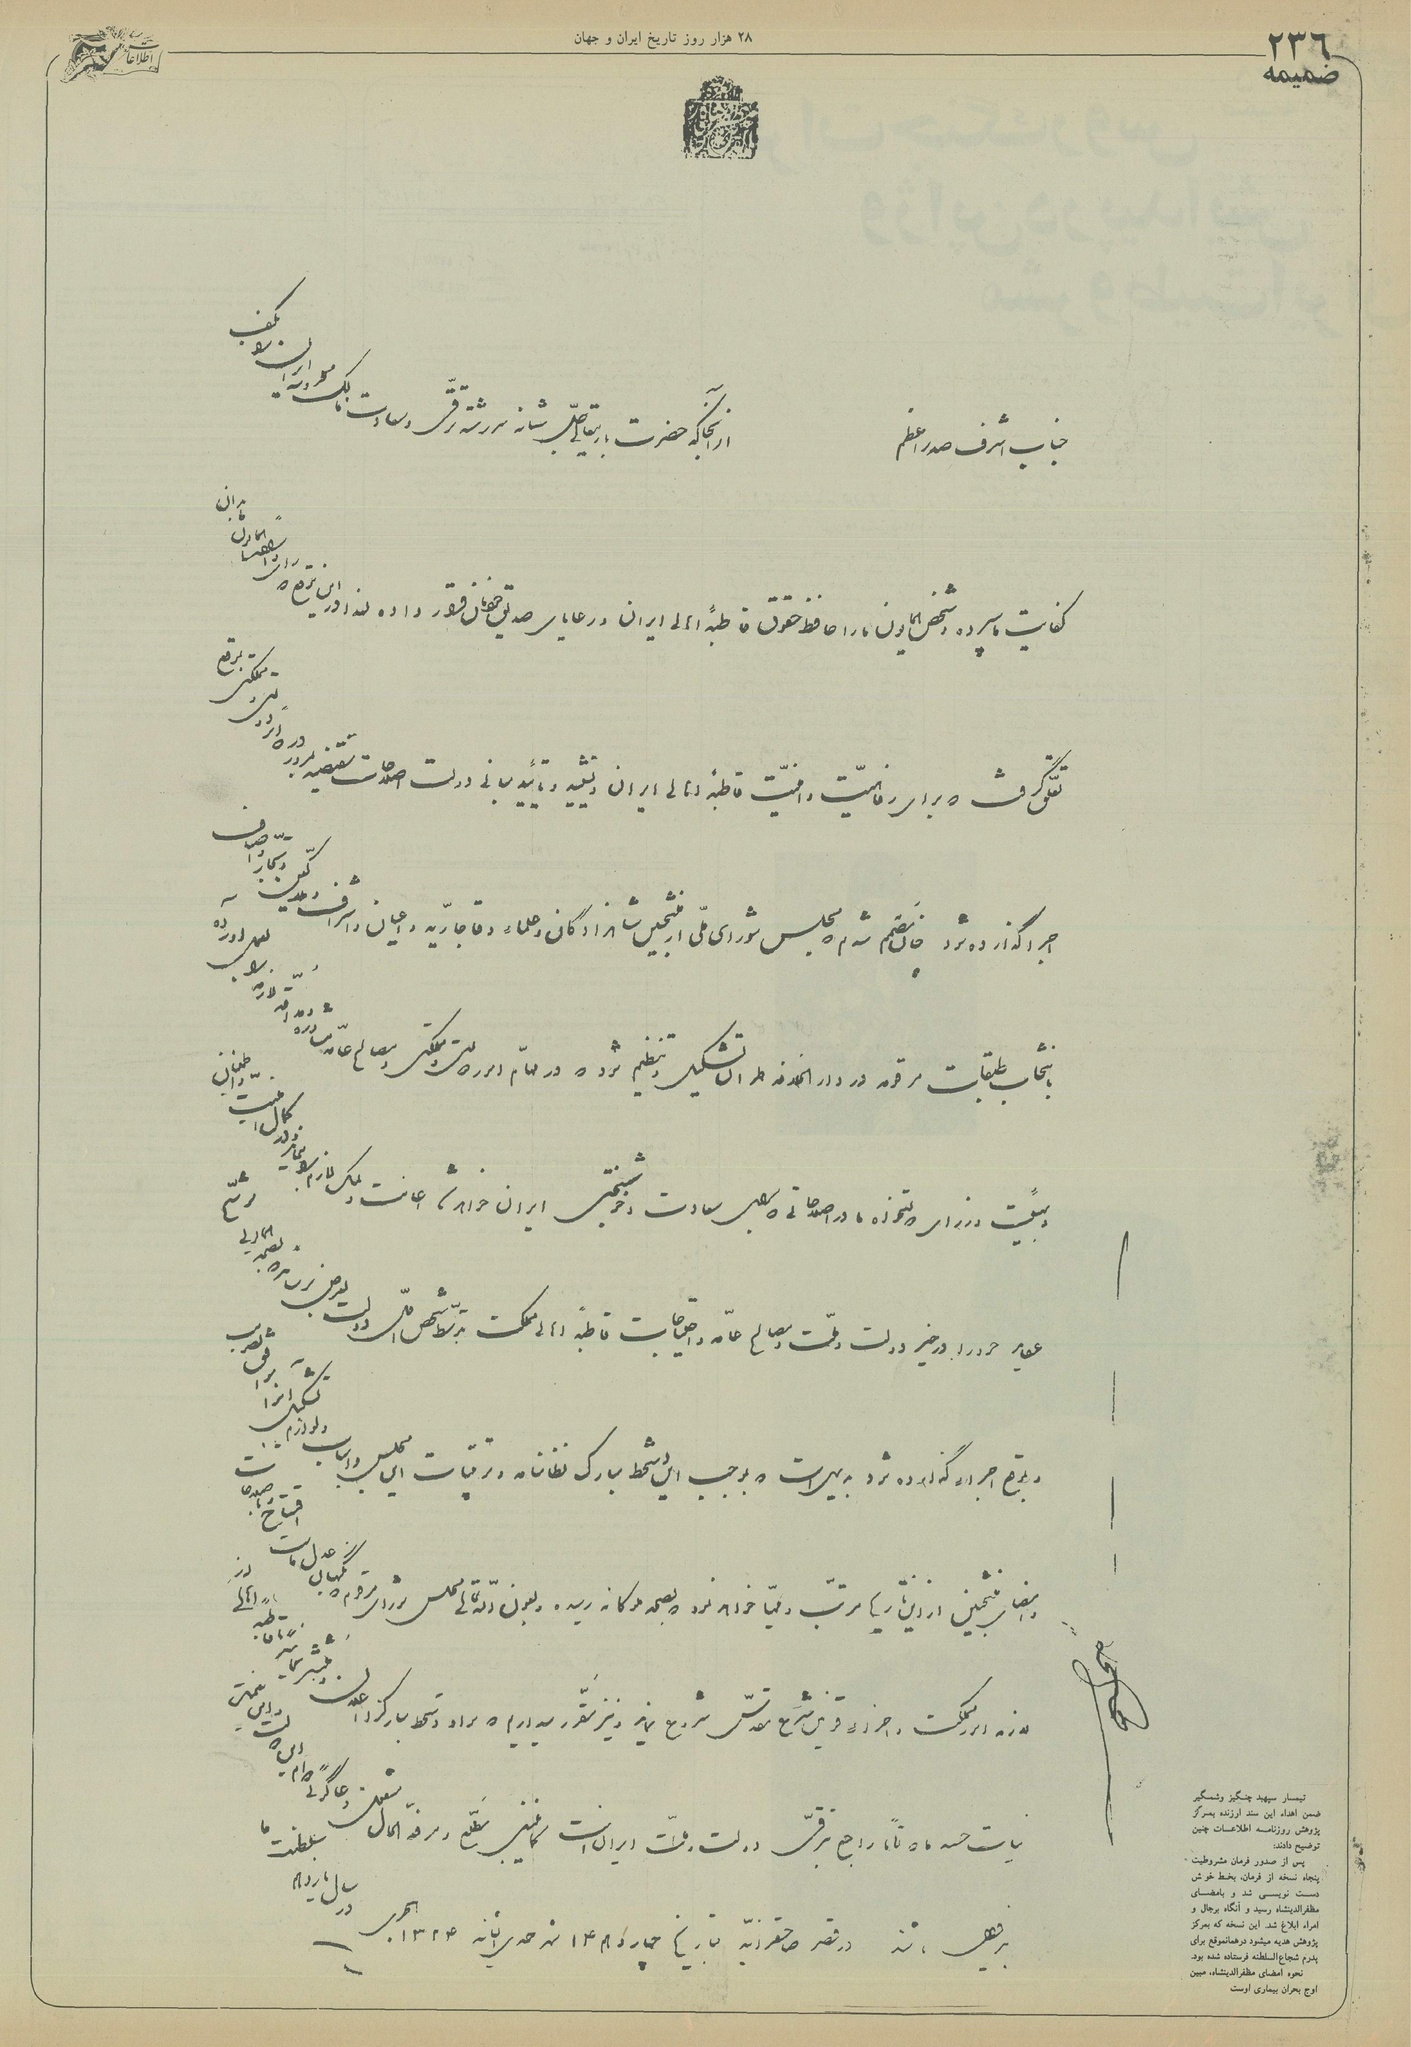 ۲۳۶
ضمیمه
۲۸ هزار روز تاریخ ایران و جهان
اطلاعات
جناب اشرف صدر اعظم
از آنجا که حضرت باریتعالی جل شانه سررشته ترقی و سعادت ممالک محروسه ایران را بکف
کفایت ما سپرده و شخص همایون ما را حافظ حقوق قاطبهٔ اهالی ایران و رعایای صدیق خودمان قرار داده لهذا در این موقع که رأی و ارادهٔ همایون ما بدان
تعلق گرفت که برای رفاهیت و امنیت قاطبهٔ اهالی ایران و تشیید و تأیید مبانی دولت اصلاحات مقتضیه بمرور در دوائر دولتی و مملکتی بموقع
اجرا گذارده شود چنان مصمم شدیم که مجلس شورای ملی از منتخبین شاهزادگان و علماء و قاجاریه و اعیان و اشراف و ملاکین و تجار و اصناف
بانتخاب طبقات مرقومه در دارالخلافه طهران تشکیل و تنظیم شود که در مهام امور دولتی و مملکتی و مصالح عامه مشاوره و مداقه لازمه را بعمل آورده
و بهیئت وزرای دولتخواه ما در اصلاحاتی که برای سعادت و خوشبختی ایران خواهد شد اعانت و کمک لازم را بنماید و در کمال امنیت و اطمینان
عقاید خود را در خیر دولت و ملت و مصالح عامه و احتیاجات قاطبهٔ اهالی مملکت بتوسط شخص اول دولت بعرض برساند که بصحهٔ همایونی موشح
و بموقع اجرا گذارده شود بدیهی است که بموجب این دستخط مبارک نظامنامه و ترتیبات این مجلس و اسباب و لوازم تشکیل آنرا موافق تصویب
و امضای منتخبین از این تاریخ مرتب و مهیا خواهد نمود که بصحهٔ ملوکانه رسیده و بعون الله تعالی مجلس شورای مرقوم که نگهبان عدل ماست افتتاح و باصلاحات
لازمه امور مملکت و اجراء قوانین شرع مقدس شروع نماید و نیز مقرر میداریم که سواد دستخط مبارک را اعلان و منتشر نمایید تا قاطبهٔ اهالی از
نیات حسنه ما که تماماً راجع بترقی دولت و ملت ایران است کماینبغی مطلع و مرفه‌الحال مشغول دعاگوئی دوام این دولت و این نعمت
بی‌زوال باشند در قصر صاحبقرانیه بتاریخ چهاردهم ۱۴ شهر جمادی‌الثانیه ۱۳۲۴ هجری در سال یازدهم سلطنت ما
تیمسار سپهبد چنگیز وشمگیر
ضمن اهداء این سند ارزنده بمرکز
پژوهش روزنامه اطلاعات چنین
توضیح دادند:
پس از صدور فرمان مشروطیت
پنجاه نسخه از فرمان، بخط خوش
دست نویسی شد و بامضای
مظفرالدینشاه رسید و آنگاه برجال و
امراء ابلاغ شد. این نسخه که بمرکز
پژوهش هدیه میشود درهمانموقع برای
پدرم شجاع‌السلطنه فرستاده شده بود.
نحوه امضای مظفرالدینشاه، مبین
اوج بحران بیماری اوست